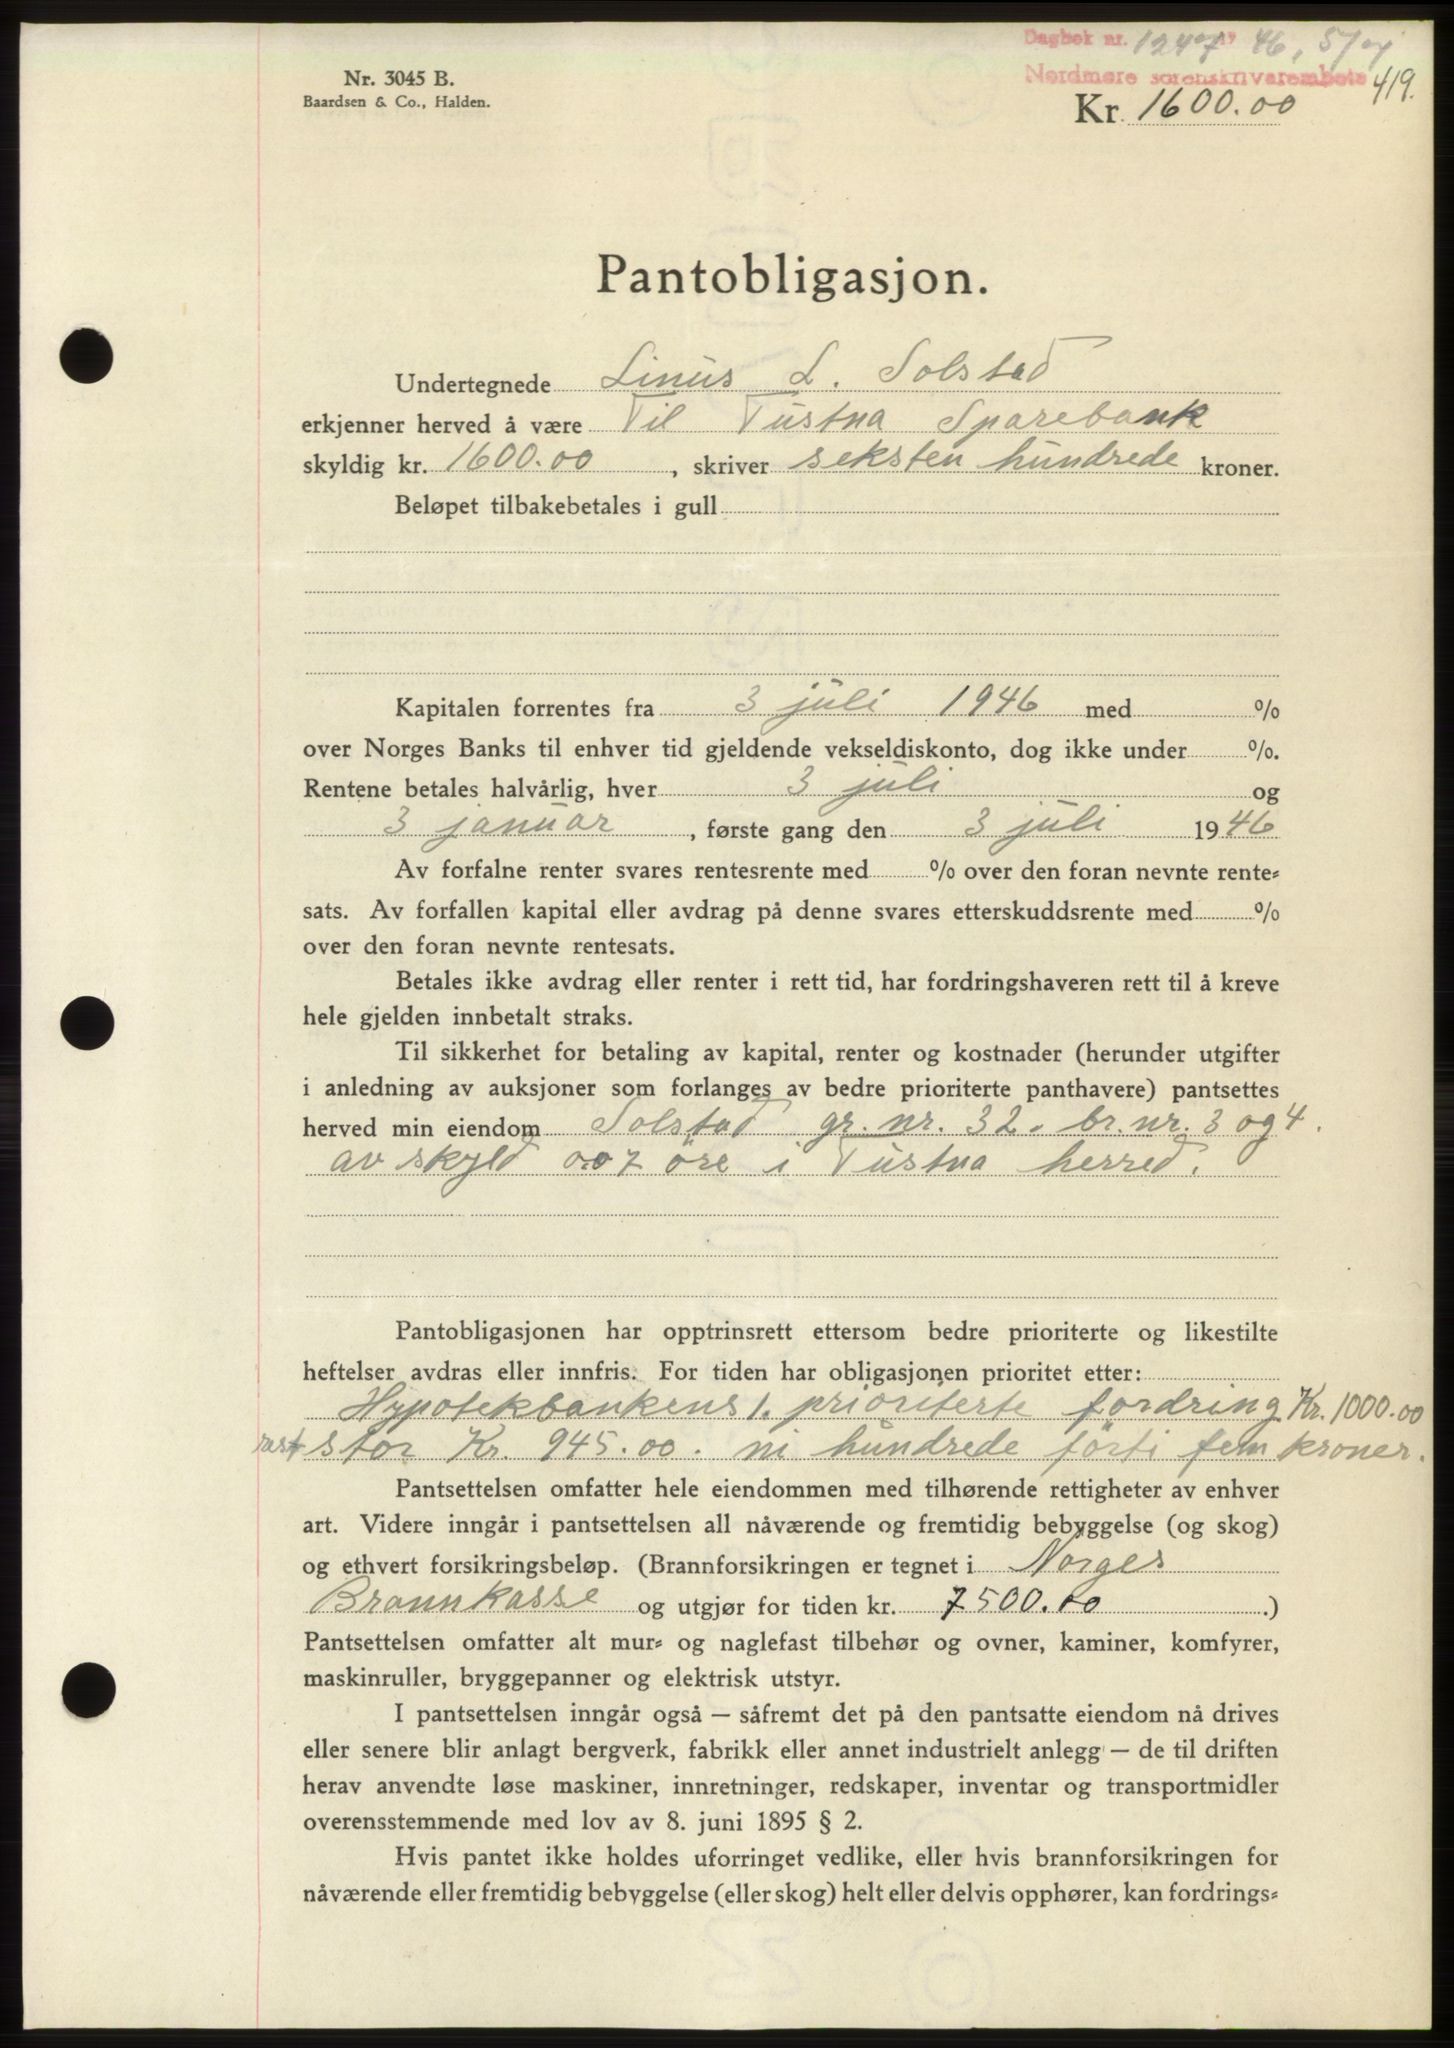 Dagbok nr. 1247 19 46, 5/7 01
Nordmøre sorenskriverembete 419.
Nr. 3045 B.
Baardsen & Co., Halden.
Kr. 1600.00
Pantobligasjon.
Undertegnede Linus L. Solstad
erkjenner herved å være Til Tustna Sparebank
skyldig kr. 1600.00, skriver seksten hundrede kroner.
Beløpet tilbakebetales i gull
Kapitalen forrentes fra 3 juli 1946 med %
over Norges Banks til enhver tid gjeldende vekseldiskonto, dog ikke under %.
Rentene betales halvårlig, hver 3 juli og
3 januar, første gang den 3 juli 1946
Av forfalne renter svares rentesrente med % over den foran nevnte rente-
sats. Av forfallen kapital eller avdrag på denne svares etterskuddsrente med %
over den foran nevnte rentesats.
Betales ikke avdrag eller renter i rett tid, har fordringshaveren rett til å kreve
hele gjelden innbetalt straks.
Til sikkerhet for betaling av kapital, renter og kostnader (herunder utgifter
i anledning av auksjoner som forlanges av bedre prioriterte panthavere) pantsettes
herved min eiendom Solstad gr. nr. 32. br. nr. 3 og 4.
av skyld 0.07 öre i Tustna herred.
Pantobligasjonen har opptrinsrett ettersom bedre prioriterte og likestilte
heftelser avdras eller innfris. For tiden har obligasjonen prioritet etter:
Hypotekbankens 1. prioriterte fordring Kr. 1000.00
rest stor Kr. 945.00. ni hundrede förti fem kroner.
Pantsettelsen omfatter hele eiendommen med tilhørende rettigheter av enhver
art. Videre inngår i pantsettelsen all nåværende og fremtidig bebyggelse (og skog)
og ethvert forsikringsbeløp. (Brannforsikringen er tegnet i Norges
Brannkasse og utgjør for tiden kr. 7500.00.)
Pantsettelsen omfatter alt mur- og naglefast tilbehør og ovner, kaminer, komfyrer,
maskinruller, bryggepanner og elektrisk utstyr.
I pantsettelsen inngår også — såfremt det på den pantsatte eiendom nå drives
eller senere blir anlagt bergverk, fabrikk eller annet industrielt anlegg — de til driften
herav anvendte løse maskiner, innretninger, redskaper, inventar og transportmidler
overensstemmende med lov av 8. juni 1895 § 2.
Hvis pantet ikke holdes uforringet vedlike, eller hvis brannforsikringen for
nåværende eller fremtidig bebyggelse (eller skog) helt eller delvis opphører, kan fordrings-